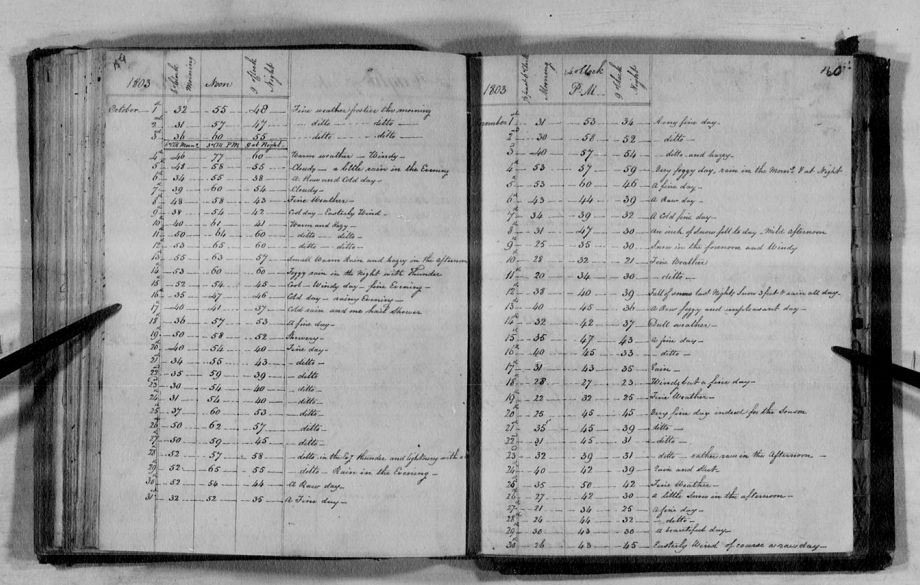 1803 6 oClock Morning Noon 9 oClock Night
October 1 32 55 48 Fine weather frosties this morning
2 31 57 47 ditto ditto
3 36 60 55 ditto ditto
P.M. 9 at Night
4 46 77 60 Warm weather - Windy -
5 48 58 35 Cloudy - a little rain in the Evening
6 34 55 38 A Raw and Cold day -
7 39 60 54 Cloudy -
8 48 58 43 Fine Weather -
9 38 54 42 Cold day - Easterly Wind -
10 40 61 41 Warm and Hazy -
11 50 64 60 ditto ditto -
12 53 65 60 ditto ditto -
13 55 63 57 Small Warm Rain and hazey in the afternoon
14 53 60 60 Foggy rain in the Night with Thunder
15 52 54 45 Cool - Windy day - fine Evening -
16 35 47 46 Cold day - rainy Evening -
17 40 41 37 Cold rain and one hard Shower
18 36 57 53 A fine day -
19 50 58 52 Showery -
20 40 54 40 Fine day -
21 34 55 43 ditto -
22 35 59 39 ditto -
23 30 54 40 ditto -
24 31 54 40 ditto -
25 37 60 53 ditto -
26 50 62 57 ditto -
27 50 59 45 ditto -
28 52 57 58 ditto in the Eg thunder and lightning with
29 52 65 55 ditto Rain in the Evening -
30 52 54 44 A Raw day -
31 32 52 35 A Fine day -
60
1803 Morning oClock P.M. 9 oClock Night
November 1 31 53 34 A very fine day.
2 30 58 52 ditto -
3 40 57 54 ditto and hazey.
4 53 57 59 Very foggy day, rain in the Morng & at Night
5 53 60 46 A fine day -
6 43 44 39 A Raw day -
7 34 39 32 A Cold fine day -
8 31 47 30 An inch of Snow fell to day - Mild afternoon
9 25 35 30 Snow in the forenoon and Windy
10 28 32 21 Fine Weather
11 20 34 30 ditto -
12 38 40 39 Fall of snow last Night, Snow 3 feet & rain all day.
13 40 45 36 A Raw foggy and unpleasant day -
14 32 42 37 Dull weather -
15 35 47 43 A fine day -
16 40 45 33 ditto -
17 31 43 35 Rain -
18 28 27 23 Windy but a fine day -
19 22 32 25 Fine Weather -
20 25 45 45 Very fine day indeed for the Season
21 35 45 39 ditto -
22 31 45 31 ditto -
23 32 39 31 ditto - rather raw in the Afternoon -
24 40 42 39 Rain and
25 35 50 42 Fine Weather -
26 27 42 30 A little Snow in the afternoon -
27 21 34 25 A fine day -
28 24 44 32 ditto -
29 30 43 30 A beautiful day -
30 26 43 45 Easterly Wind of course a raw day -